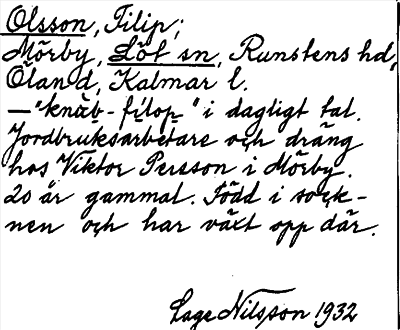 Olsson, Filip;
Mörby, Löt sn, Runstens hd,
Öland, Kalmar l.
— "knäb-filop" i dagligt tal.
Jordbruksarbetare och dräng
hos Viktor Persson i Mörby.
20 år gammal. Född i sock-
nen och har växt opp där.
Lage Nilsson 1932